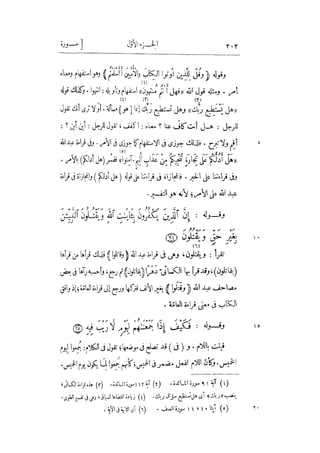 ٢٠٢ الجزء الأول [ سورة
وقوله ﴿ وَقُلْ لِلَّذِينَ أُوتُوا الْكِتَابَ وَالْأُمِّيِّينَ أَأَسْلَمْتُمْ ﴾ وهو استفهام ومعناه
أمر . ومثله قول الله « فهل أنتم منتهون » استفهام وتأويله : انتهوا . وكذلك قوله
« هل يستطيع ربك » وهل تستطيع ربك إنما [ هو ] مسألة . أولا ترى أنك تقول
للرجل : هل أنت كافّ عنا ؟ معناه : اكفف ، تقول للرجل : أين أين ؟ :
٥ أقم ولا تبرح . فلذلك جوزى فى الاستفهام كما جوزى فى الأمر . وفى قراءة عبد الله
« هل أدلكم على تجارة تنجيكم من عذاب أليم . آمنوا » ففسر ( هل أدلكم ) بالأمر .
وفى قراءتنا على الخبر . فالمجازاة فى قراءتنا على قوله ( هل أدلكم ) والمجازاة فى قراءة
عبد الله على الأمر ؛ لأنه هو التفسير .
وقوله : إِنَّ الَّذِينَ يَكْفُرُونَ بِآيَاتِ اللَّهِ وَيَقْتُلُونَ النَّبِيِّينَ
١٠ بِغَيْرِ حَقٍّ وَيَقْتُلُونَ
تقرأ : ويقتلون ، وهى فى قراءة عبد الله ( وقاتلوا ) فلذلك قرأها من قرأها
( يقاتلون ) ، وقد قرأ بها الكسائىّ دهرا ( يقاتلون ) ثم رجع ، وأحسبه رآها فى بعض
مصاحف عبد الله ( وقتلوا ) بغير الألف فتركها ورجع إلى قراءة العامة ؛ إذ وافق
الكتاب فى معنى قراءة العامة .
١٥ وقوله : فَكَيْفَ إِذَا جَمَعْنَاهُمْ لِيَوْمٍ لَا رَيْبَ فِيهِ ٢٥
قيلت باللام . و ( فى ) قد تصلح فى موضعها ؛ تقول فى الكلام : جُمعوا ليوم
الخميس . وكأن اللام لفعل مضمر فى الخميس ؛ كأنهم جُمعوا لما يكون يوم الخميس .
(١) آية ٩١ سورة المائدة . (٢) آية ١١٢ سورة المائدة . (٣) هذه قراءة الكسائى
بنصب « ربك » أى هل تستطيع سؤال ربك . (٤) زيادة اقتضاها السياق
٢٠ (٥) آيتا ١٠ ، ١١ سورة الصف . (٦)